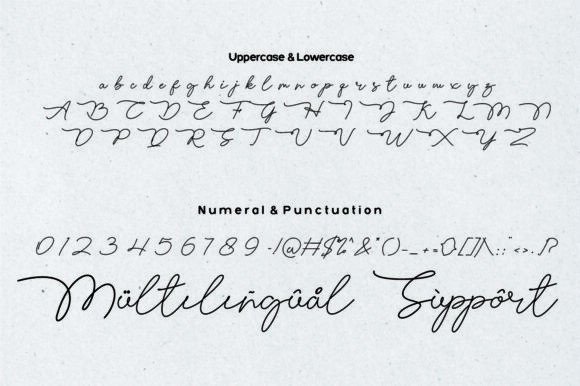 Uppercase & Lowercase
a b c d e f g h i j k l m n o p q r s t u v w x y z
A B C D E F G H I J K L M N
O P Q R S T U V W X Y Z
Numeral & Punctuation
0 1 2 3 4 5 6 7 8 9
Mültilingûål Sùppôrt